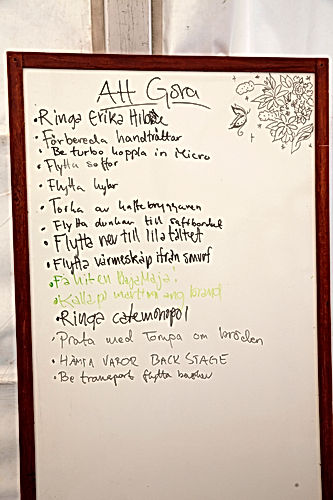 Att Göra
• Ringa Erika
• Förbereda handtvättar
• Be turbo koppla in Micro
• Flytta soffor
• Flytta kylar
• Torka av kaffebryggaren
• Flytta dunkar till saftbordet
• Flytta ner till lilatältet
• Flytta värmeskåp ifrån smurf
• Få hit en Bajamaja!
• Kalla på Martin ang brand
• Ringa catemonopol
• Prata med Tompa om bröden
• HÄMTA VAROR BACKSTAGE
• Be transport flytta